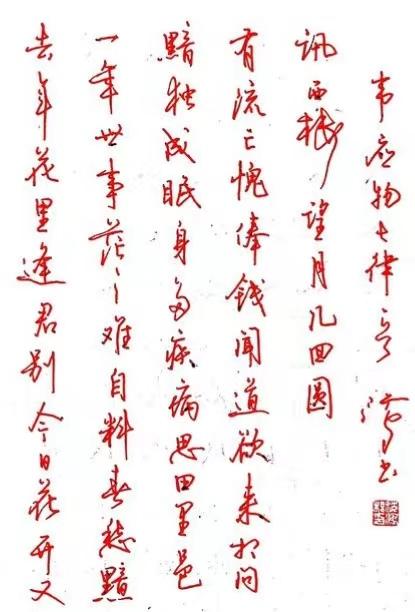 去年花里逢君别今日花开又
一年世事茫々难自料春愁黯
黯独成眠身多疾病思田里邑
有流亡愧俸錢聞道欲来相问
讯西楼望月几回圓
韦应物七律一首 书